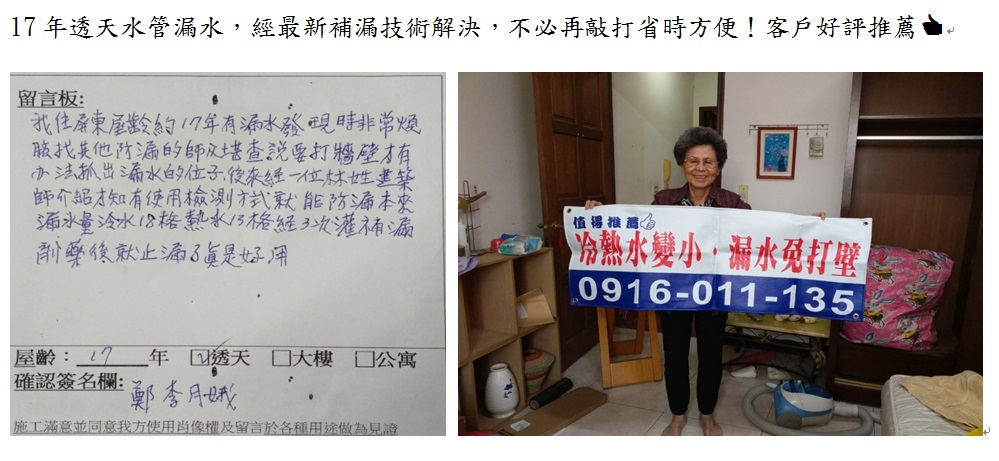 17 年透天水管漏水，經最新補漏技術解決，不必再敲打省時方便！客戶好評推薦
留言板:
我住屏東屋齡約17年有漏水發現時非常煩
腦找其他防漏的師父堪查說要打牆壁才有
办法抓出漏水的位子後來經一位林姓建築
師介紹才知有使用檢測方式就能防漏本來
漏水量冷水18格熱水13格經3次灌補漏
劑藥後就止漏了真是好用
屋齡：17 年 ☑透天 □大樓 □公寓
確認簽名欄: 鄭李月娥
施工滿意並同意我方使用肖像權及留言於各種用途做為見證
值得推薦
冷熱水變小．漏水免打壁
0916-011-135